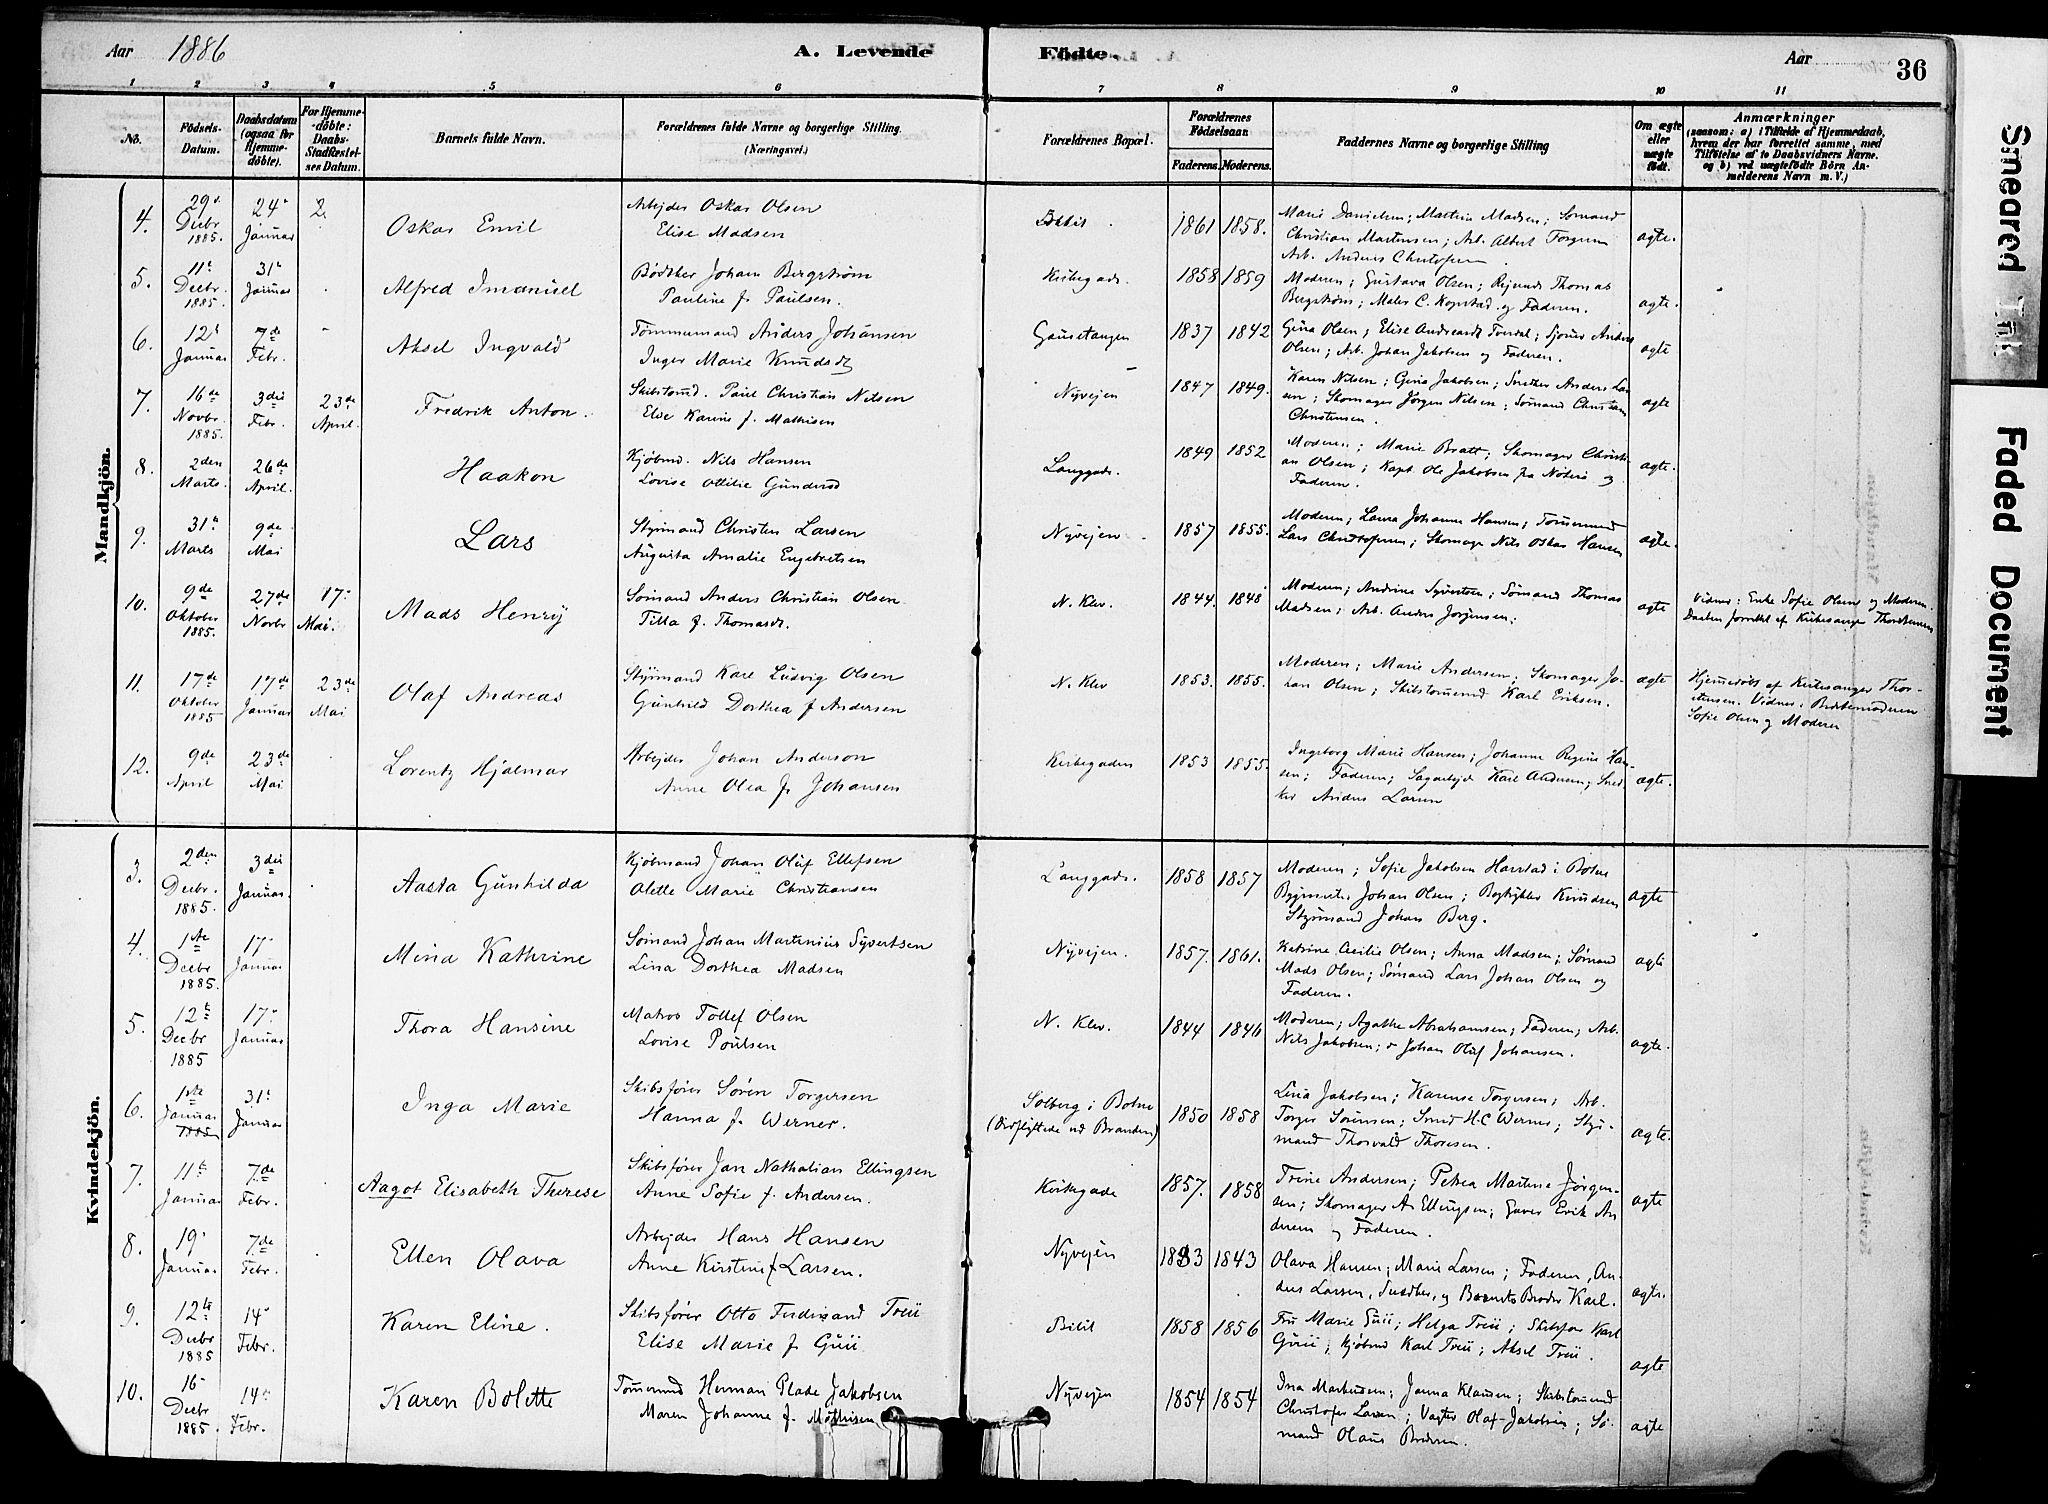 Aar 1886 A. Levende Födte. Aar 36
1 2 3 4 5 6 7 8 9 10 11
No.
Födsels-Datum.
Daabsdatum (ogsaa for Hjemmedöbte).
For Hjemmedöbte: Daabs-Stadfæstelses Datum.
Barnets fulde Navn.
Forældrenes fulde Navne og borgerlige Stilling. (Næringsvei.)
Forældrenes Bopæl.
Forældrenes Födselsaar.
Faderens. Moderens.
Faddernes Navne og borgerlige Stilling
Om ægte eller uægte födt.
Anmærkninger
(saasom: a) i Tilfælde af Hjemmedaab, hvem der har forrettet samme, med Tilföielse af to Daabsvidners Navne, og b) ved uægtefödte Börn Anmelderens Navn m. V.)
Mandkjön.
4. 29 Decbr 1885. 24 Januar 2. Oskar Emil
Arbejder Oskar Olsen
Elise Madsen
1861 1858.
Marie Danielsen; Martin Madsen; Sømand
Christian Martensen; Arb. Albert
Arb. Anders
ægte.
5. 11 Decbr. 1885. 31 Januar Alfred Imanuel
Bødtker Johan Bergstrøm
Pauline f. Paulsen.
Kirkegade. 1858 1859
Moderen; Gustava Olsen; Thomas
Bergstrøm; Maler C. Kopstad og Faderen.
ægte.
6. 12 Januar 7de Febr. Aksel Ingvald
Tømmermand Anders Johansen
Inger Marie Knudsdt
Gausetangen 1837 1842
Gina Olsen; Elise Andreasdt
Olsen; Arb. Johan Jakobsen og Faderen.
ægte
7. 16de Novbr. 1885. 3die Febr. 23de April. Fredrik Anton.
Skibstømd. Paul Christian Nilsen
Else Karine f. Mathisen
Nyvejen 1847 1849.
Karen Nilsen; Gina Jakobsen; Snedker Anders Lar-
sen; Skomager Jörgen Nilsen; Sømand Christian
Christensen.
ægte
8. 2den Marts. 26de April. Haakon
Kjøbmd. Nils Hansen
Lovise Ottilie Gundersd
Langgade. 1849 1852
Moderen; Marie Bratt; Skomager Christi-
an Olsen; Kapt. Ole Jakobsen fra Nøterø og
Faderen.
ægte.
9. 31 Marts 9de Mai Lars
Styrmand Christen Larsen
Augusta Amalie Engebretsen
Nyvejen 1857 1855.
Moderen; Laura Johanne Hansen; Tømmermd
Lars Christofersen; Skomager Nils Oskar Hansen
ægte.
10. 9de Oktober 1885. 27de Novbr 17 Mai. Mads Henry
Sømand Anders Christian Olsen
Tilla f. Thomasdt.
N. Klev. 1844. 1848
Moderen; Andrine Syvertsen; Sømand Thomas
Madsen; Arb. Anders Jørgensen;
ægte
Vidner: Enke Sofie Olsen og Moderen.
Daaben forrettet af Kirkesanger Thorstensen
11. 17de Oktober 1885 17de Januar 23de Mai Olaf Andreas
Styrmand Karl Ludvig Olsen
Gunhild Dorthea f Andersen
N. Klev 1853. 1855.
Moderen; Marie Andersen; Skomager Jo-
han Olsen; Skibstømmd Karl Eriksen.
ægte
Hjemmedöbt af Kirkesanger Thor-
stensen. Vidner: Bedstemoderen
Sofie Olsen og Moderen
12. 9de April 23de Mai Lorentz Hjalmar
Arbejder Johan Anderson
Anne Olea f. Johansen
Kirkegaden 1853 1855.
Ingeborg Marie Hansen; Johanne Regine Han-
sen; Faderen; Sagarbejd Karl Andersen; Sned-
ker Anders Larsen
ægte.
Kvindekjön.
3. 2den Decbr. 1885. 3die Januar. Aasta Gunhilda
Kjøbmand Johan Oluf Ellefsen
Olette Marie Christiansen
Langgade. 1858 1857
Moderen; Sofie Jakobsen Harstad i Botne
Bygmester Johan Olsen; Bogtrykker Knudsen
Styrmand Johan Berg.
ægte
4. 1ste Decbr 1885. 17 Januar Mina Kathrine
Sømand Johan Martinius Syvertsen
Lina Dorthea Madsen
Nyvejen. 1857. 1861.
Katrine Cecilie Olsen; Anna Madsen; Sømand
Mads Olsen; Sømand Lars Johan Olsen og
Faderen.
ægte
5. 12 Decbr 1885 17 Januar Thora Hansine
Matros Tollef Olsen
Lovise Poulsen
N. Klev. 1844 1846
Moderen; Agathe Abrahamsen; Faderen; Arb.
Nils Jakobsen; Johan Oluf Johansen.
ægte.
6. 1ste Januar 1885 31 Januar Inga Marie
Skibsfører Søren Torgersen
Hanna f. Werner.
Solberg i Botne
(Indflyttede ved Branden) 1850 1858
Lina Jakobsen; Karense Torgersen; Arb.
Torger Sørensen; Smed H.C Werner; Styr-
mand Thorvald Thoresen.
ægte.
7. 11 Januar 7de Febr. Aagot Elisabeth Therese
Skibsfører Jan Nathalian Ellingsen
Anne Sofie f. Andersen.
Kirkegade 1857. 1858
Trine Andersen; Petrea Martine Jørgen-
sen; Skomager A. Ellingsen; Garver Erik An-
dersen og Faderen.
ægte
8. 19 Januar 7de Febr. Ellen Olava
Arbejder Hans Hansen
Anne Kirstine f Larsen.
Nyvejen 1833 1843
Olava Hansen; Marie Larsen; Faderen, An-
ders Larsen, Snedker, og Barnets Broder Karl.
ægte.
9. 12te Decbr 1885 14 Febr. Karen Eline.
Skibsfører Otto Ferdinand Treu
Elise Marie f. Guu
1858 1856
Fru Marie Guu; Helga Treu; Skibsfører Karl
Guu; Kjøbmd Karl Treu; Aksel Treu.
ægte
10. 16 Decbr 1885. 14 Febr. Karen Bolette
Tømmermd Herman Plade Jakobsen
Maren Johanne f. Mathisen
Nyvejen 1854 1854
Ina Markussen; Janna Klausen; Skibstømmd
Christofer Larsen; Vagter Olaf Jakobsen; Sø-
mand Olaus
ægte
Smeared Ink
Faded Document